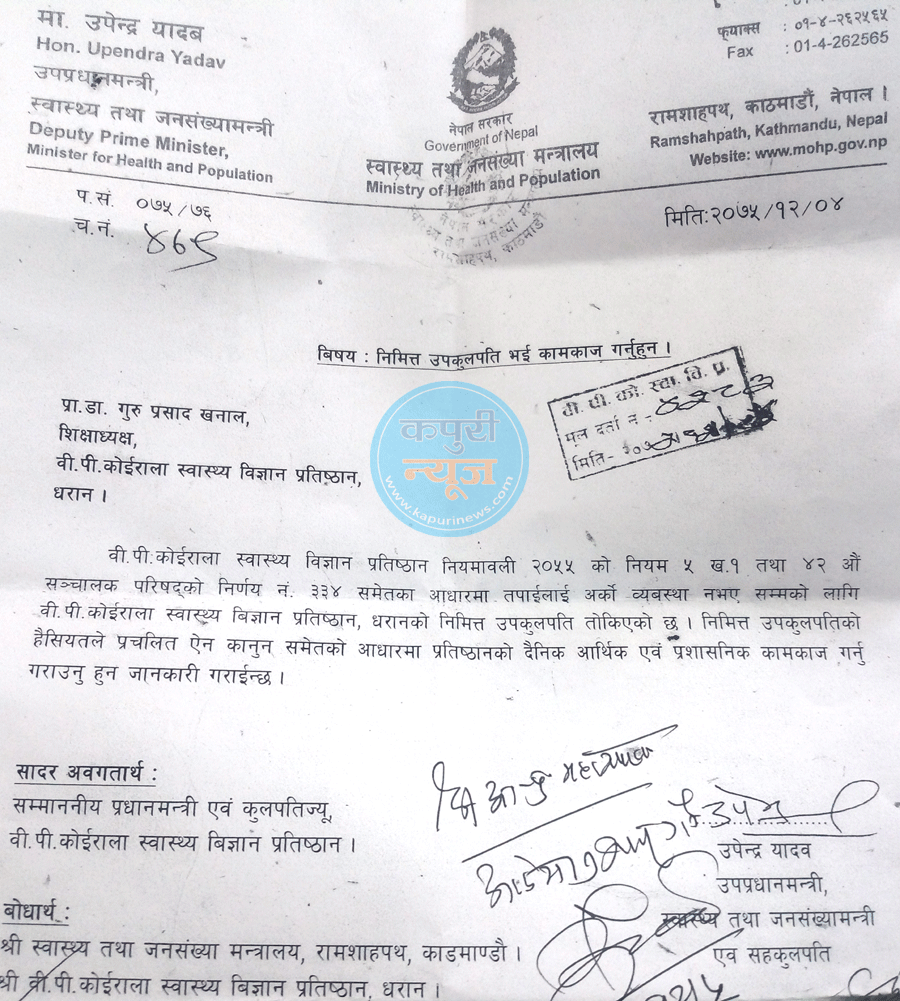 मा. उपेन्द्र यादब
Hon. Upendra Yadav
उपप्रधानमन्त्री,
स्वास्थ्य तथा जनसंख्यामन्त्री
Deputy Prime Minister,
Minister for Health and Population
नेपाल सरकार
Government of Nepal
स्वास्थ्य तथा जनसंख्या मन्त्रालय
Ministry of Health and Population
फ्याक्स : ०१-४-२६२५६५
Fax : 01-4-262565
रामशाहपथ, काठमाडौं, नेपाल ।
Ramshahpath, Kathmandu, Nepal
Website: www.mohp.gov.np
प.सं. ०७५/७६
च.नं. ४६९
मिति:२०७५/१२/०४
बिषय : निमित्त उपकुलपति भई कामकाज गर्नुहुन ।
वी. पी. को. स्वा. वि. प्र.
मूल दर्ता नं -
मिति-
प्रा.डा. गुरु प्रसाद खनाल,
शिक्षाध्यक्ष,
वी.पी.कोईराला स्वास्थ्य विज्ञान प्रतिष्ठान,
धरान ।
कपुरी
न्यूज
www.kapurinews.com
वी.पी.कोईराला स्वास्थ्य विज्ञान प्रतिष्ठान नियमावली २०५५ को नियम ५ ख.१ तथा ४२ औं
सञ्चालक परिषद्को निर्णय नं. ३३४ समेतका आधारमा तपाईलाई अर्को व्यबस्था नभए सम्मको लागि
वी.पी.कोईराला स्वास्थ्य विज्ञान प्रतिष्ठान, धरानको निमित्त उपकुलपति तोकिएको छ । निमित्त उपकुलपतिको
हैसियतले प्रचलित ऐन कानुन समेतको आधारमा प्रतिष्ठानको दैनिक आर्थिक एवं प्रशासनिक कामकाज गर्नु
गराउनु हुन जानकारी गराईन्छ ।
सादर अवगतार्थ :
सम्माननीय प्रधानमन्त्री एवं कुलपतिज्यू,
वी.पी.कोईराला स्वास्थ्य बिज्ञान प्रतिष्ठान ।
उपेन्द्र यादव
उपप्रधानमन्त्री,
स्वास्थ्य तथा जनसंख्यामन्त्री
एवं सहकुलपति
बोधार्थ :
श्री स्वास्थ्य तथा जनसंख्या मन्त्रालय, रामशाहपथ, काडमाण्डौ ।
श्री वी.पी.कोईराला स्वास्थ्य बिज्ञान प्रतिष्ठान, धरान ।